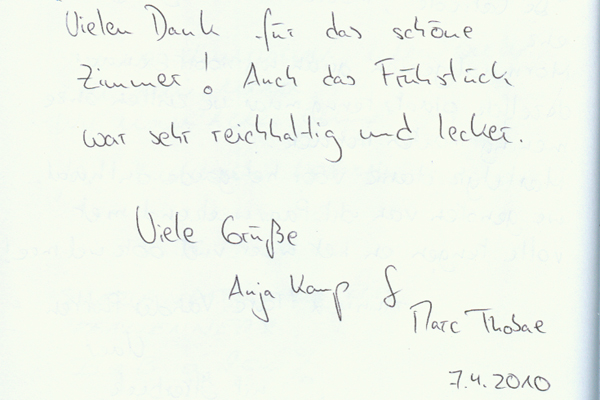 Vielen Dank für das schöne
Zimmer! Auch das Frühstück
war sehr reichhaltig und lecker.
Viele Grüße
Anja Kamp &
Marc Thobae
7.4.2010